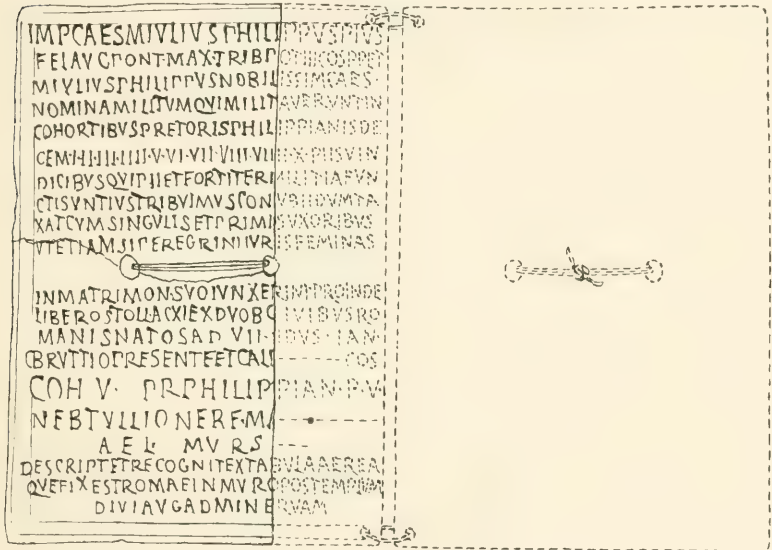 IMPCAESMIVLIVSPHILIPPVSPIVS
FELAVGPONT·MAX·TRIBPOTIIICOSPPET
MIVLIVSPHILIPPVSNOBILISSIMCAES·
NOMINAMILITVMQVIMILITAVERVNTIN
COHORTIBVSPRETORISPHILIPPIANISDE
CEM·I·II·III·IIII·V·VI·VII·VIII·VIIII·X·PIISVIN
DICIBVSQVIPIIETFORTITERMILITIAFVN
CTISVNTIVSTRIBVIMVSCONVBIIDVMTA
XATCVMSINGVLISETPRIMISVXORIBVS
VTETIAMSIPEREGRINIIVRISFEMINAS
INMATRIMONSVOIVNXERINTPROINDE
LIBEROSTOLLACXIEXDVOBCIVIBVSRO
MANISNATOSAD VII·IDVS·IAN·
CBRVTTIOPRESENTEETCALL - - - - - COS
COH V· PRPHILIPPIAN·P·V
NEBTVLLIONERF·MA - - - - - -
AEL· MVRS - - -
DESCRIPTETRECOGNITEXTABVLAAEREA
QVEFIXESTROMAEINMVROPOSTEMPLVM
DIVIAVGADMINERVAM